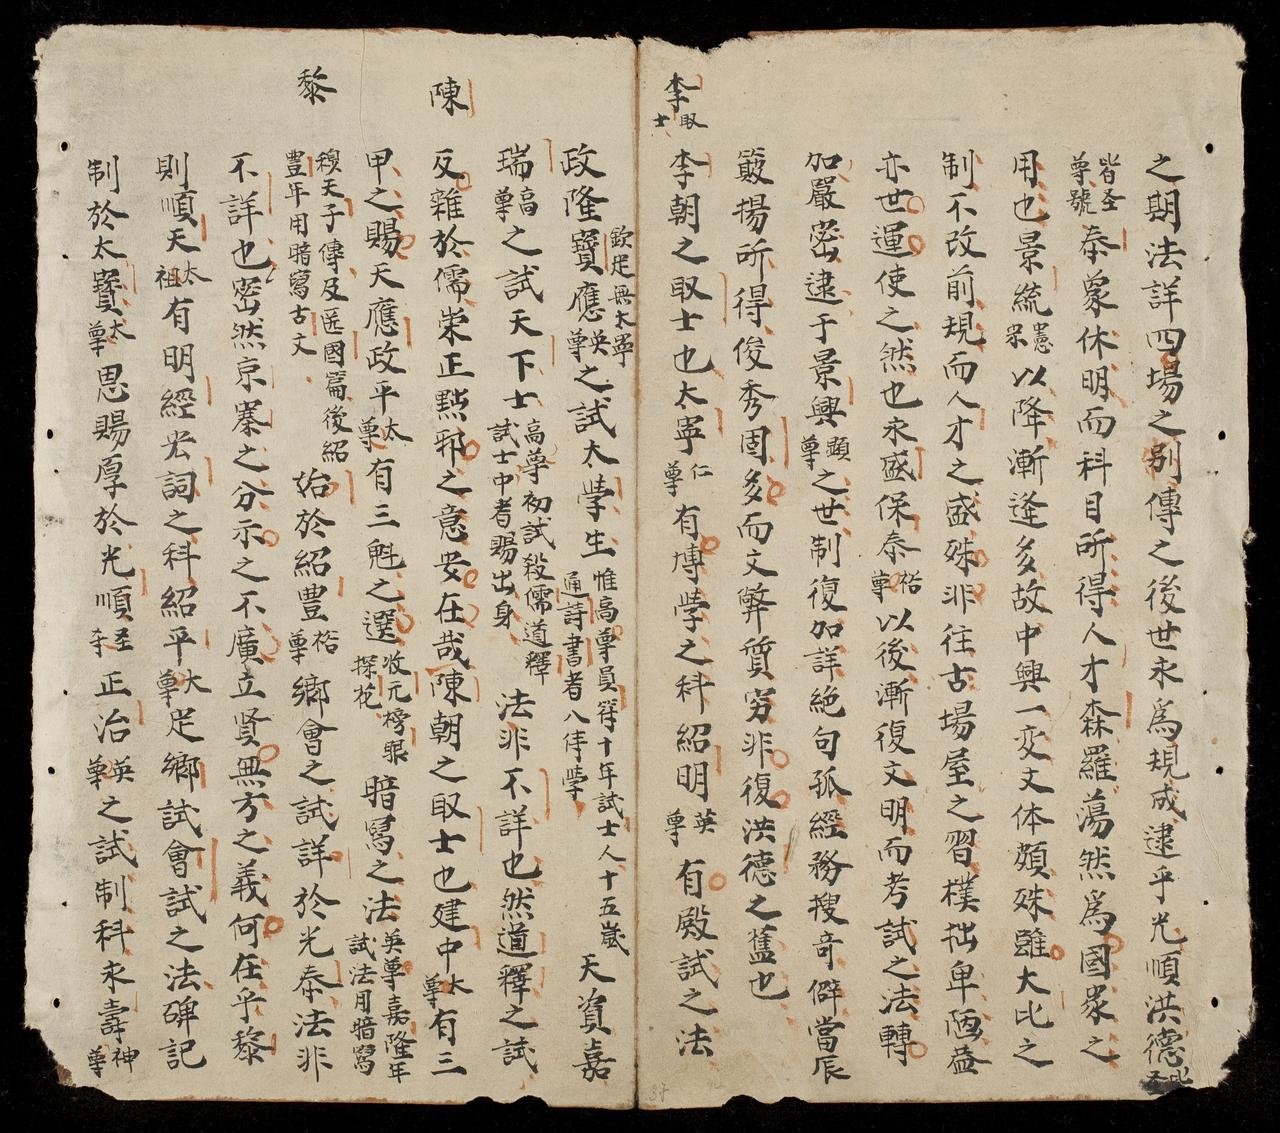 之期法詳四塲之别傳之後世永爲規成逮乎光順洪德
皆圣尊號泰象休明而科目所得人才森羅蕩然爲國家之
用也景統憲宗以降漸逢多故中興一变文体頗殊雖大比之
制不改前規而人才之盛殊非往古塲屋之習樸拙卑陋蓋
亦世運使之然也永盛保泰裕尊以後漸復文明而考試之法轉
加嚴密逮于景興顯尊之世制復加詳絶句孤經務搜竒僻當辰
簸揚所得俊秀固多而文弊質穷非復洪德之舊也
李取士
李朝之取士也太寧仁尊有博学之科紹明英尊有殿試之法
政隆寶應英尊之試太学生惟高尊員符十年試士人十五歲通詩書者八侍学天資嘉
欽定無太寧
瑞高尊之試天下士高尊初試殺儒道釋試士中者賜出身法非不詳也然道釋之試
陳
反雜於儒崇正黜邪之意安在哉陳朝之取士也建中太尊有三
甲之賜天應政平太尊有三魁之選收元榜眼探花暗寫之法英尊嘉隆年試法用暗寫
黎
穆天子傳及医國篇後紹豐年用暗寫古文始於紹豐裕尊鄉會之試詳於光泰法非
不詳也密然京寨之分示之不廣立賢無方之義何在乎黎
則順天太祖有明經宏詞之科紹平太尊定鄉試會試之法碑記
制於太寶太尊恩賜厚於光順圣宗正治英尊之試制科永壽神尊